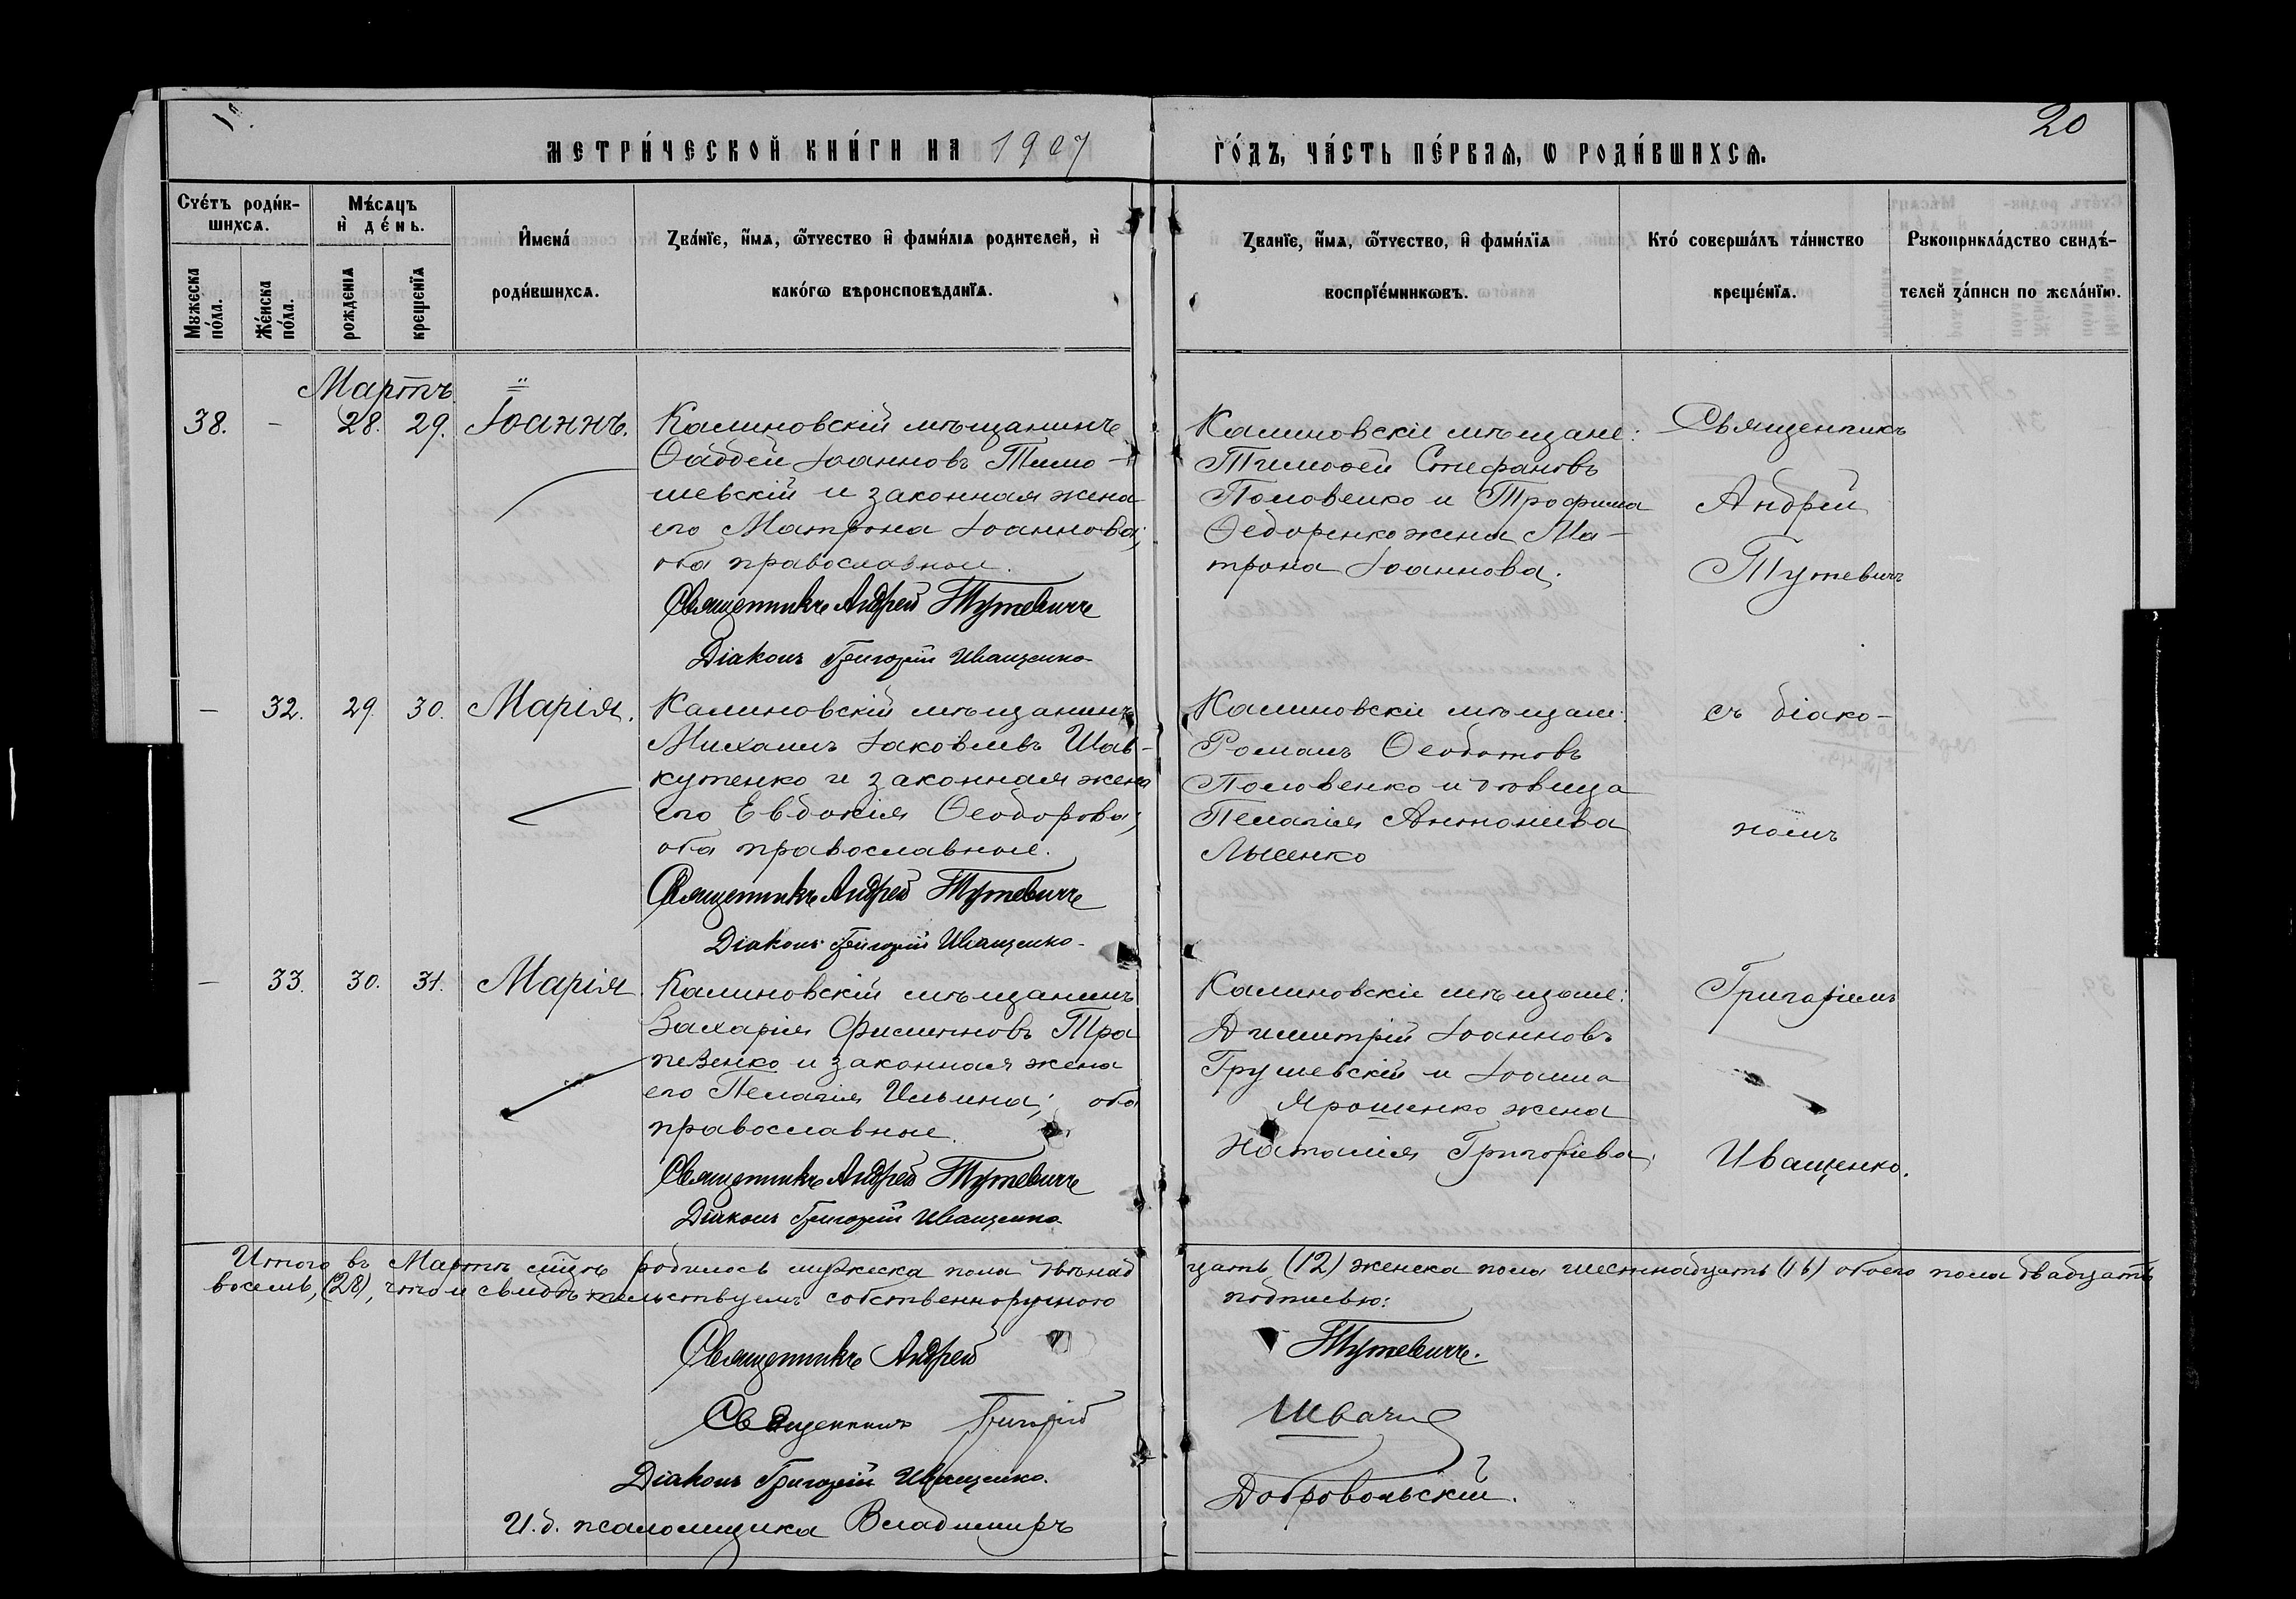 20
МЕТРИ́ЧЕСКОЙ КНИ́ГИ НА 1907 ГО́ДЪ, ЧА́СТЬ ПЕ́РВАѦ, Ѡ РОДИ́ВШИХСѦ.
Счéтъ роди́в-
шихсѧ.
Мѣ́сѧцъ
и҆ де́нь.
Мꙋжеска по́ла.
Же́нска по́ла.
рожденїѧ
крещенїѧ
И҆мена́
роди́вшихсѧ.
Ꙁва́нїе, и҆́мѧ, ѻ҆́тчество и҆ фами́лїѧ родителей, и҆
како́гѡ вѣроисповѣданїѧ.
Ꙁванїе, и҆́мѧ, ѻ҆́тчество, и҆ фами́лїѧ
воспрїе́мникѡвъ.
Кто́ соверша́лъ та́инство
креще́нїѧ.
Рꙋкоприкла́дство свидѣ́-
телей ꙁа́писи по жела́нїю.
Мартъ.
38. - 28. 29. Іоаннъ.
Калиновскій мѣщанинъ
Ѳаддей Іоанновъ Тимо-
шевскій и законная жена
его Матрона Іоаннова;
оба православные.
Священникъ Андрей Тутевичъ
Діаконъ Григорій Иващенко
Калиновскіе мѣщане:
Тимоѳей Стефановъ
Половенко и Трофима
Ѳедоренко жена Ма-
трона Іоаннова.
Священникъ
Андрей
Тутевичъ
- 32. 29. 30. Марія.
Калиновскій мѣщанинъ
Михаилъ Іаковлевъ Шав-
кутенко и законная жена
его Евдокія Ѳеодорова;
оба православные.
Священникъ Андрей Тутевичъ
Діаконъ Григорій Иващенко
Калиновскіе мѣщане:
Романъ Ѳеодотовъ
Половенко и дѣвица
Пелагія Антоніева
Лысенко
съ діако-
номъ
- 33. 30. 31. Марія
Калиновскій мѣщанинъ
Захарія Филимоновъ Тра
пезенко и законная жена
его Пелагія Ильина; оба
православные.
Священникъ Андрей Тутевичъ
Діаконъ Григорій Иващенко
Калиновскіе мѣщане:
Димитрій Іоанновъ
Грушевскій и Іоанна
Ярошенко жена
Наталія Григоріева.
Григоріемъ
Иващенко.
Итого въ Мартѣ мцѣ родилось мужеска пола двѣнад цать (12) женска пола шестнадцать (16) обоего пола двадцать
восемь, (28), что и свидѣтельствуемъ собственноручною подписью:
Священникъ Андрей Тутевичъ.
Священникъ Григорій
Діаконъ Григорій Иващенко.
И.д. псаломщика Владимиръ Добровольскій.